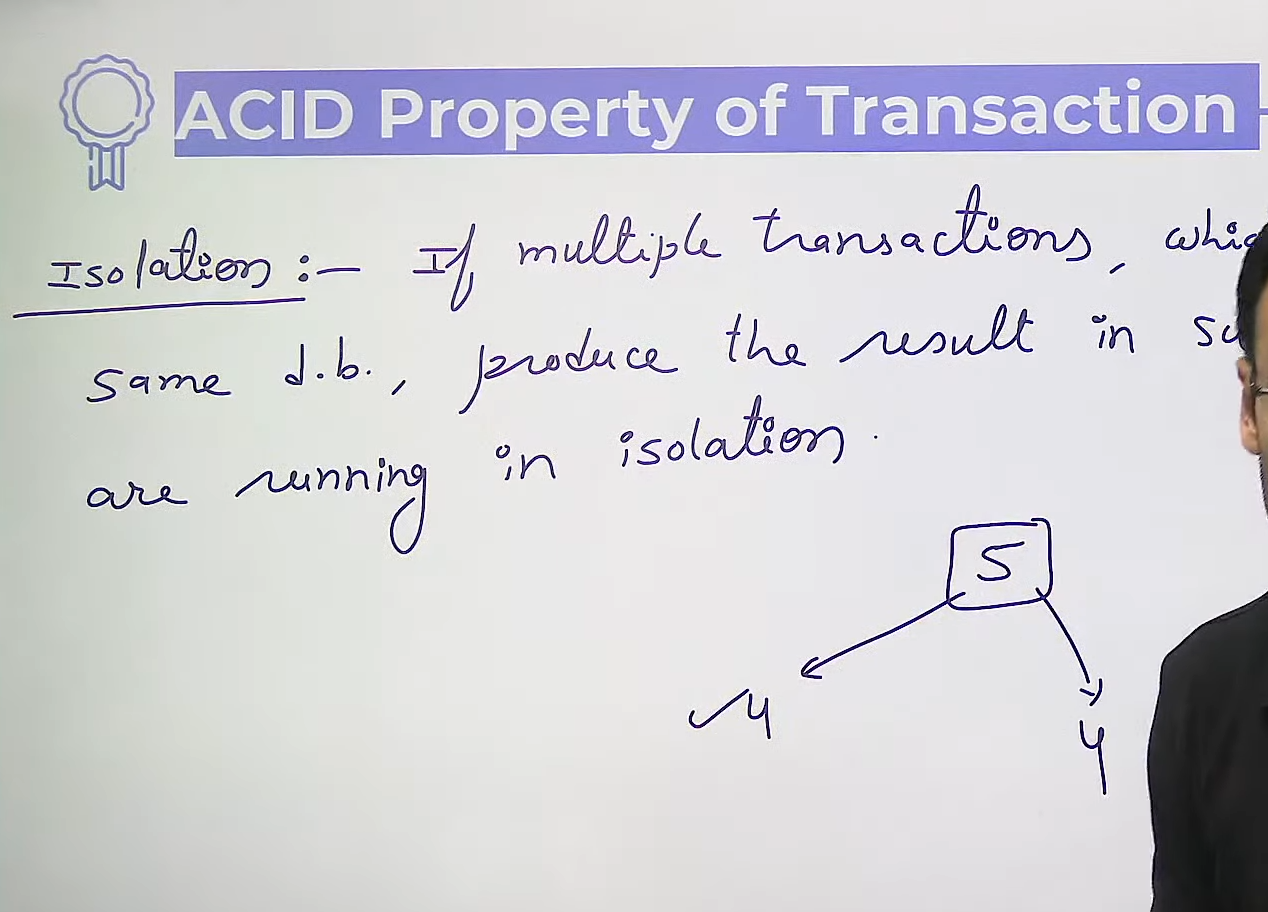 ACID Property of Transaction
Isolation :- If multiple transactions,
same d.b., produce the result in
are running in isolation.
5
4
4